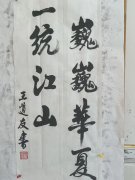 巍巍華夏
一统江山
王道友書